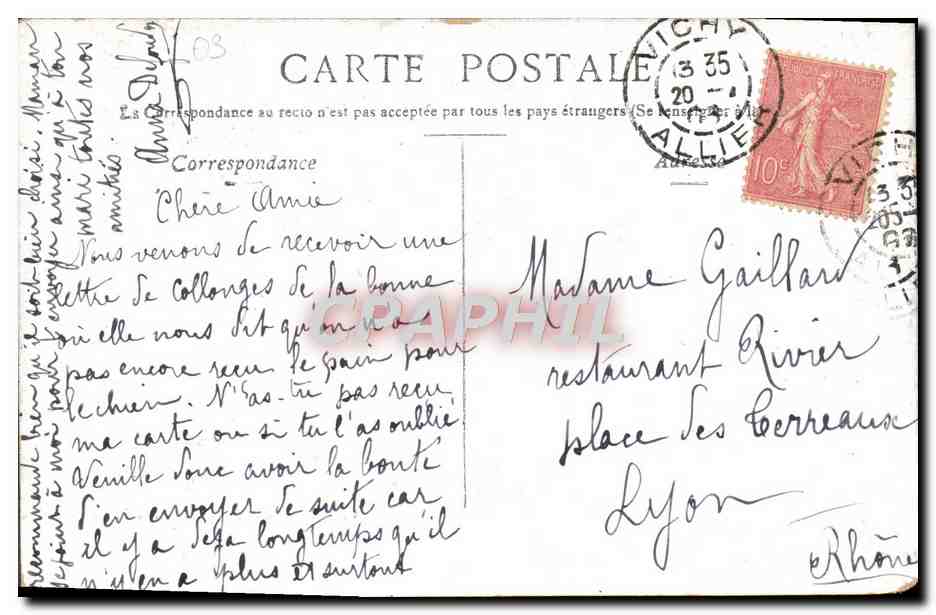 CARTE POSTALE
La Correspondance au recto n'est pas acceptée par tous les pays étrangers (Se renseigner à la
Correspondance
Adresse
Chère Amie
Nous venons de recevoir une
lettre de collonges de la bonne
où elle nous dit qu'on n'a
pas encore reçu le pain pour
le chien. N'as-tu pas reçu
ma carte ou si tu l'as oublié
Venille donc avoir la bonté
d'en envoyer de suite car
il y a déja longtemps qu'il
n'y en a plus et surtout
recommande bien qu'il soit bien choisi. Maman
se joint à moi pour t'envoyer ainsi qu'à ton
mari toutes nos
amitiés.
Anna
03
Madame Gaillard
restaurant Rivier
place des Terreaux
Lyon
Rhône
VICHY
13 35
20
ALLIER
FRANÇAISE
10c
VICH
13 35
CPAPHIL